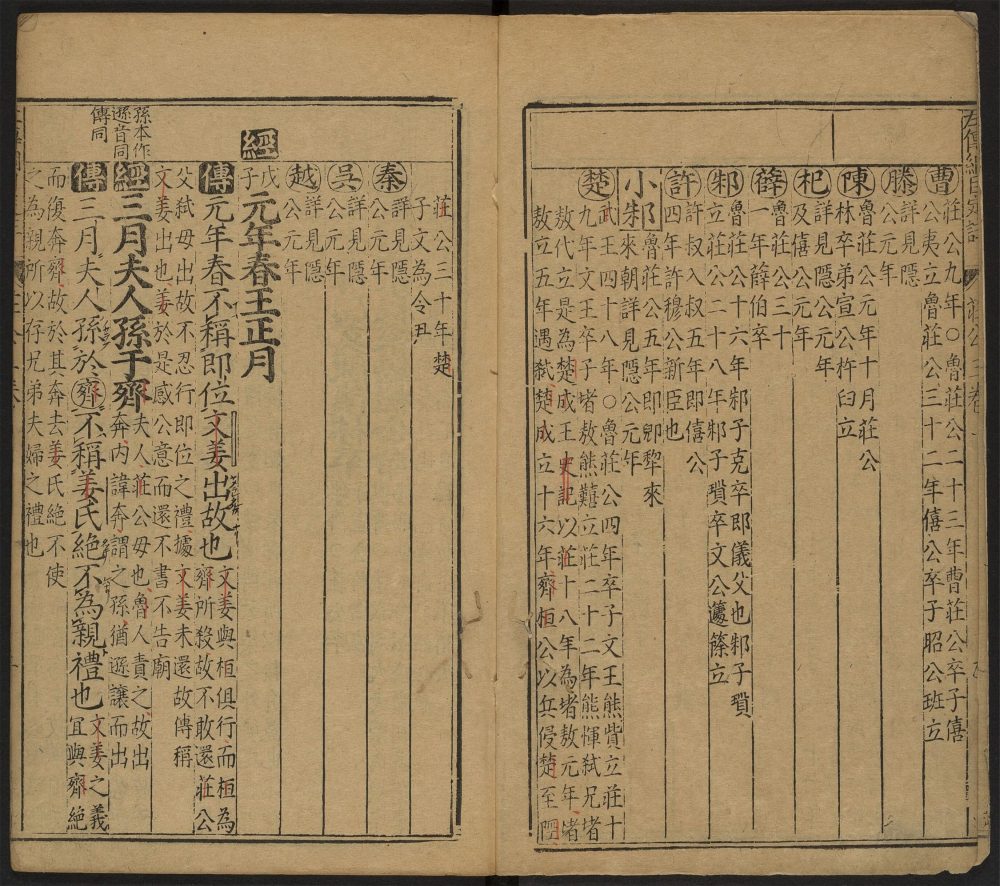 左傳經
莊公 三卷
曹 莊公九年○魯莊公二十三年曹莊公卒子僖
公夷立魯莊公三十二年僖公卒子昭公班立
滕 詳見隱
公元年
陳 魯莊公元年十月莊公
林卒弟宣公杵臼立
杞 詳見隱公元年
及僖公元年
薛 魯莊公三十
一年薛伯卒
邾 魯莊公十六年邾子克卒即儀父也邾子瑣
立莊公二十八年邾子瑣卒文公籧篨立
許 許叔入叔五年即僖公
四年許穆公新臣也
小邾 魯莊公五年即郳犂來
來朝詳見隱公元年
楚 武王四十八年○魯莊公四年卒子文王熊貲立莊十
九年文王卒子堵敖熊囏立莊二十二年熊惲弒兄堵
敖代立是為楚成王史記以莊十八年為堵敖元年堵
敖立五年遇弒楚成立十六年齊桓公以兵侵楚至陘
莊公三十年楚
子文為令尹
秦 詳見隱
公元年
吳 詳見隱
公元年
越 詳見隱
公元年
經 戊子 元年春王正月
傳 元年春不稱即位文姜出故也 文姜與桓俱行而桓為
齊所殺故不敢還莊公
父弒母出故不忍行即位之禮據文姜未還故傳稱
文姜出也姜於是感公意而還不書不告廟
經 三月夫人孫于齊 夫人莊公母也魯人責之故出
奔內諱奔謂之孫猶遜讓而出
孫本作
遜音同
傳同
傳 三月夫人孫於齊不稱姜氏絕不為親禮也 文姜之義
宜與齊絕
而復奔齊故於其奔去姜氏絕不使
之為親所以存兄弟夫婦之禮也